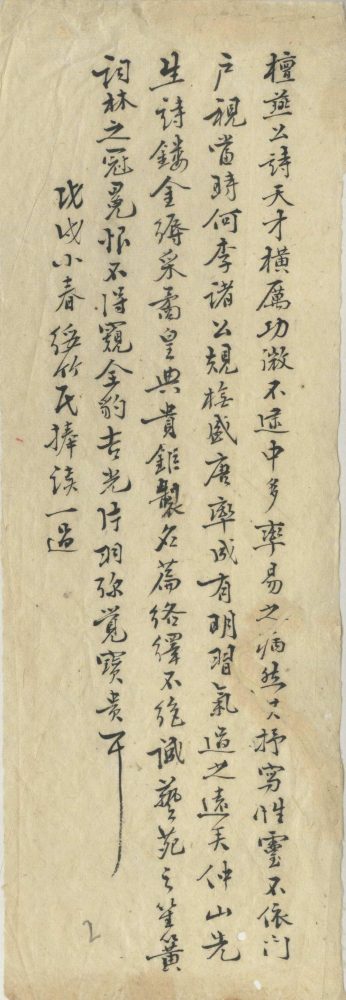 檀燕公詩天才橫厲功漵不逮中多率易之病然其抒寫性靈不依門
戶視當時何李諸公規橅盛唐率成有明習氣過之遠矣仲山先
生詩鏤金錯采矞皇典貴鉅製名篇絡繹不絕誠藝苑之笙簧
詞林之冠冕惜不得窺全豹吉光片羽彌覺寶貴耳
戊戌小春綏竹民捧讀一過
2